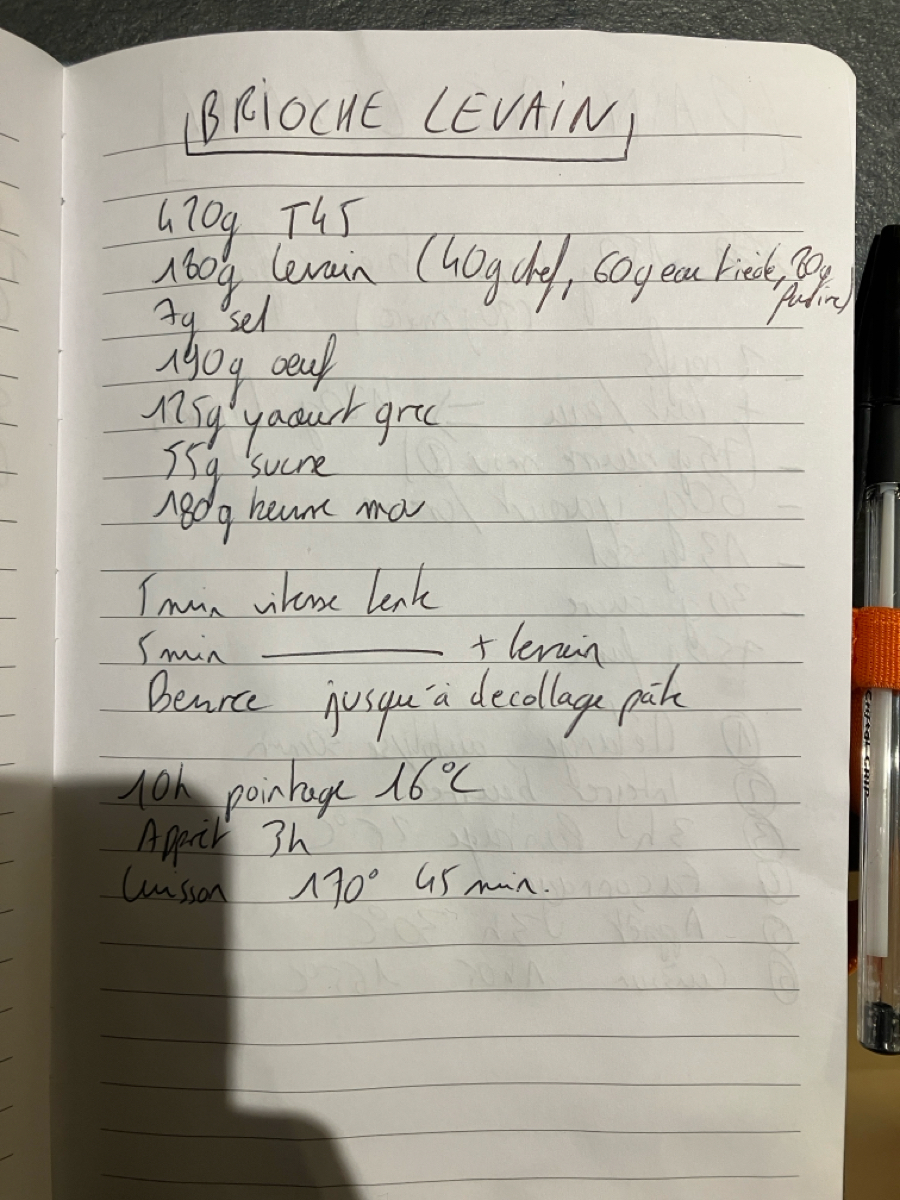 BRIOCHE LEVAIN
420g T45
180g levain (40g chef, 60g eau tiède, 80g farine)
7g sel
190g oeuf
125g yaourt grec
55g sucre
180g beurre mou
5 min vitesse lente
5 min ———— + levain
Beurre jusqu'à decollage pâte
10h pointage 16°C
Apprêt 3h
Cuisson 170° 45 min.
CRISTAL GRIP